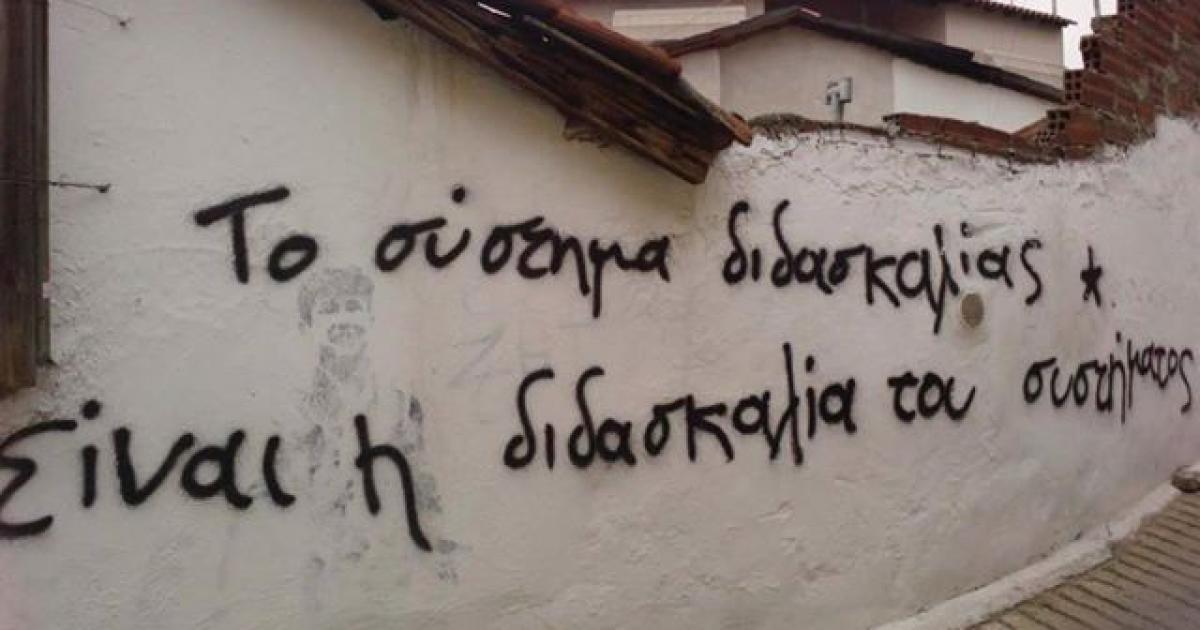 Το σύστημα διδασκαλίας *
είναι η διδασκαλία του συστήματος